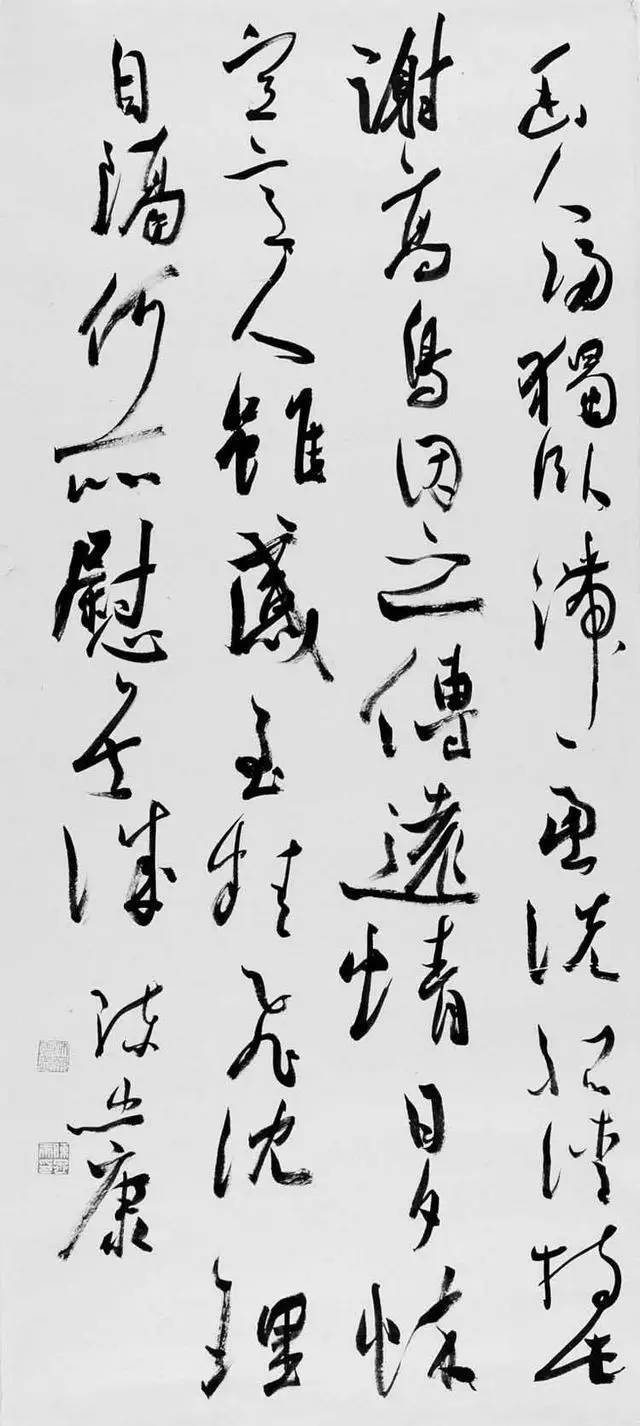 幽人歸獨臥滯慮洗孤清持此
謝高鳥因之傳遠情日夕懷
空意人雖感至精飛沈理
自隔何所慰吾誠 陳忠康